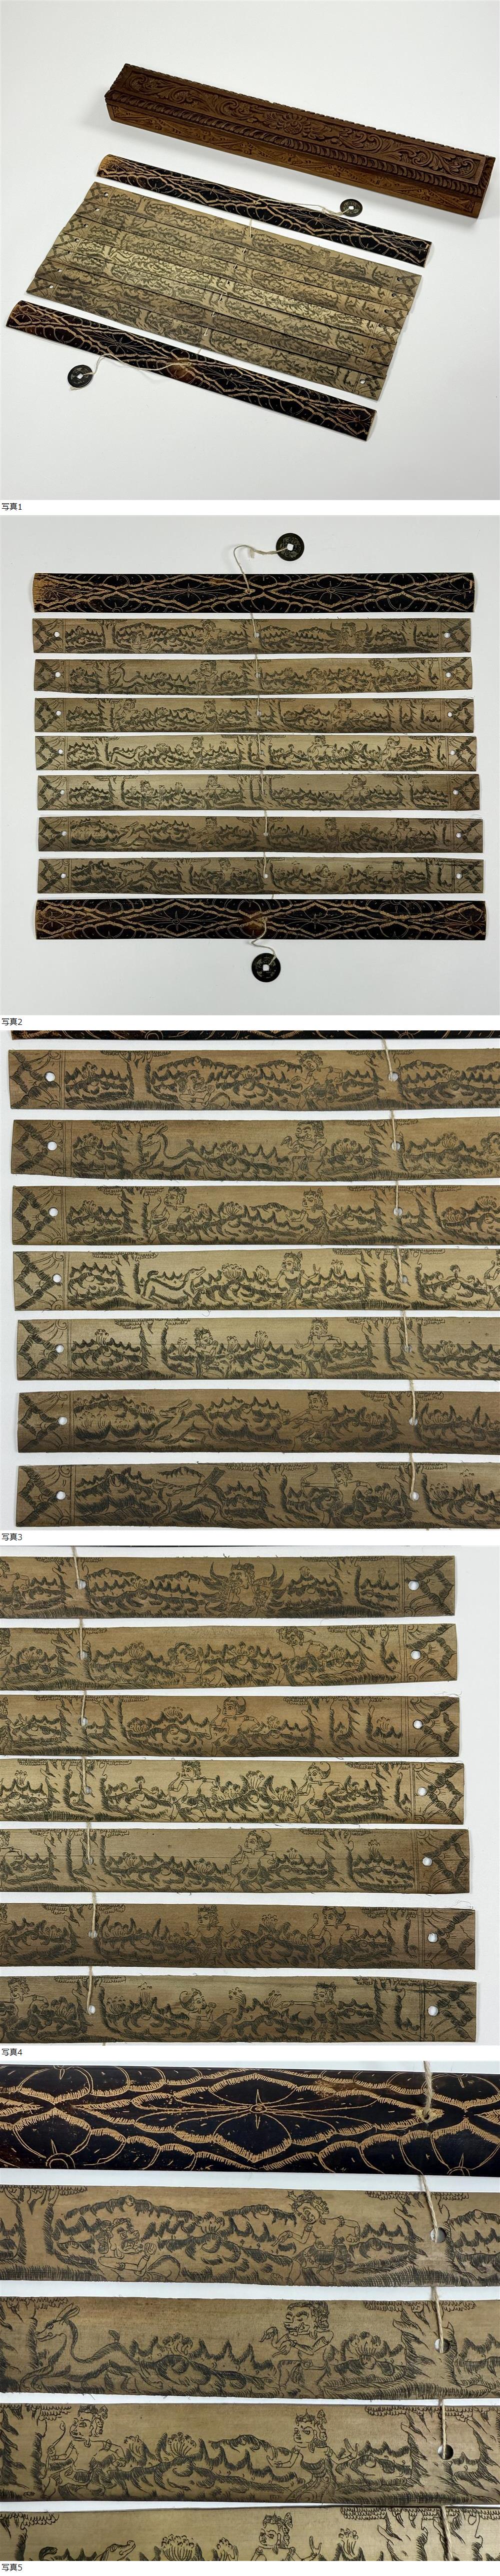 写真1
写真2
写真3
写真4
写真5